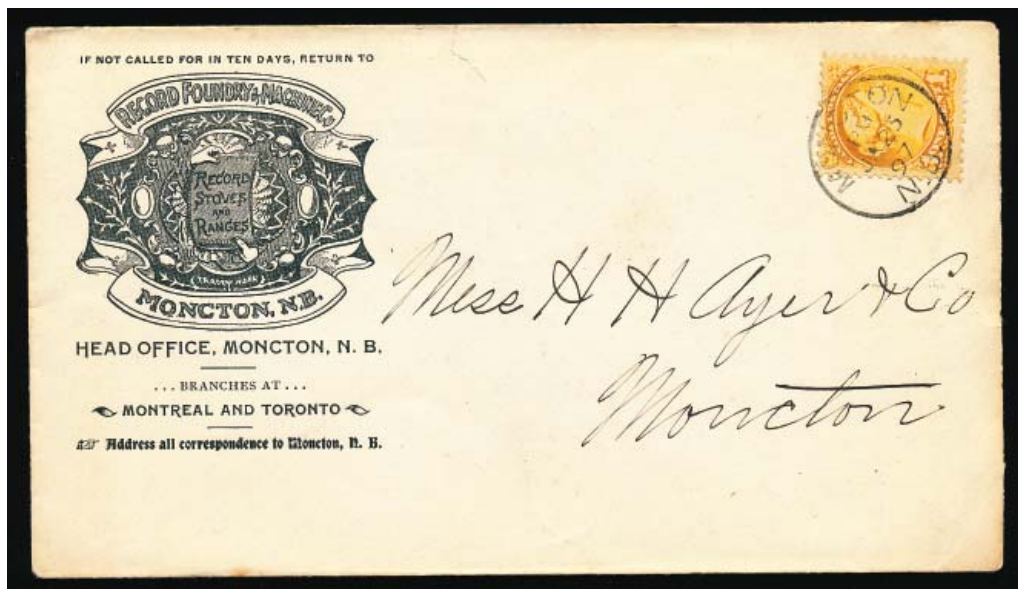 IF NOT CALLED FOR IN TEN DAYS, RETURN TO
RECORD FOUNDRY & MACHINE Co
RECORD
STOVES
AND
RANGES
TRADE MARK
MONCTON, N.B.
HEAD OFFICE, MONCTON, N. B.
... BRANCHES AT ...
MONTREAL AND TORONTO
Address all correspondence to Moncton, N. B.
MONCTON
25
97
N.B.
Mess H H Ayer & Co
Moncton